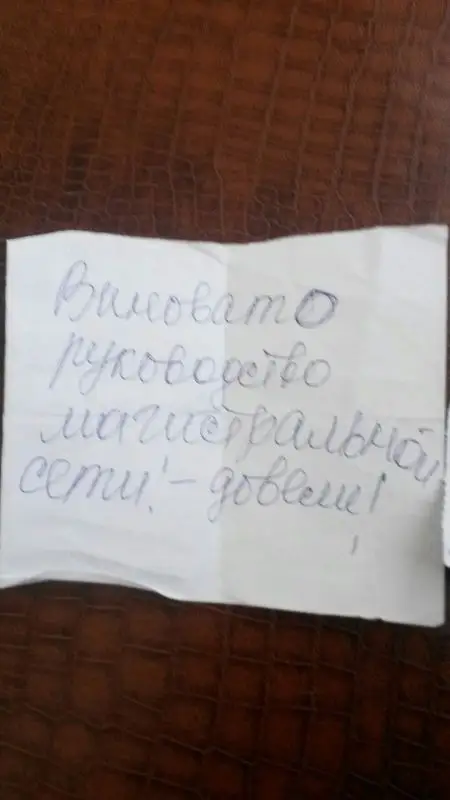 Виновато
руководство
магистральной
сети! - довели!